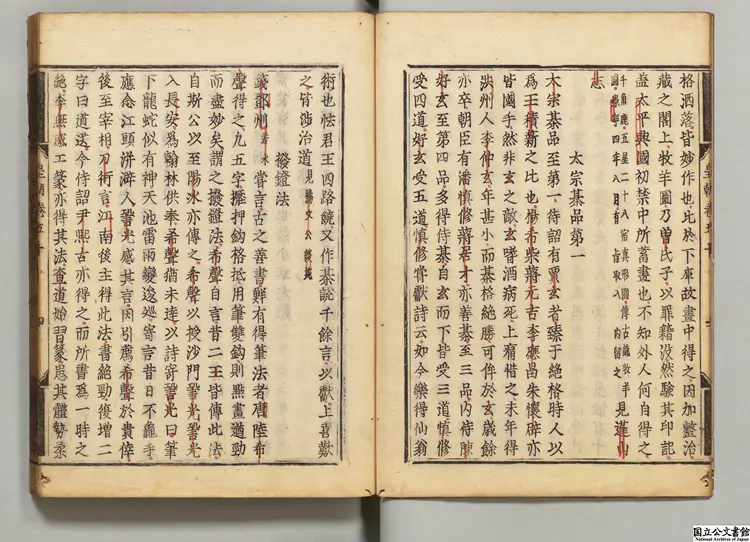 格洒落皆妙作也比於下庫故畫中得之因加整治
藏之閣上牧羊圖乃曾氏子以罪籍波然驗其印記
盖太平興國初禁中所蓄畫也不知外人何自得之
千角鹿五星二十八宿真形圖傳古龍牧羊
圖熈寧四年八月有旨取入内留之
見蓬山
志
太宗棊品第一
太宗棊品至第一待詔有賈玄者臻于絶格時人以
為王積薪之比也楊希粲蔣元吉李應昌朱懷璧亦
皆國手然非玄之敵玄嗜酒病死上痛惜之末年得
洪州人李仲玄年甚小而棊格絶勝可侔於玄歳餘
亦卒朝臣有潘慎修蔣居才亦善棊至三品内侍陳
好玄至第四品多得侍棊自玄而下皆受三道慎修
受四道好玄受五道慎修甞獻詩云如今樂得仙翁
皇朝卷五十
術也怯君王四路饒又作棊說千餘言以獻上喜歎
之皆渉治道見楊文公談苑
撥鐙法
錢鄧州若水甞言古之善書鮮有得筆法者唐陸希
聲得之凡五字擫押鈎格抵用筆雙鈎則點畫遒勁
而盡妙矣謂之撥鐙法希聲自言昔二王皆傳此法
自斯公以至陽氷亦傳之希聲以授沙門䛒光䛒光
入長安為翰林供奉希聲猶未達以詩寄䛒光曰筆
下龍蛇似有神天池雷雨變逡廵寄言昔日不龜手
應念江頭洴澼人䛒光感其言因引薦希聲於貴倖
後至宰相刁衎言江南後主得此法書絶勁復增二
字曰道送今侍詔尹熈古亦得之而所書為一時之
絶李無惑工篆亦得其法查道始習篆患其體勢柔
国立公文書館
National Archives of Japan